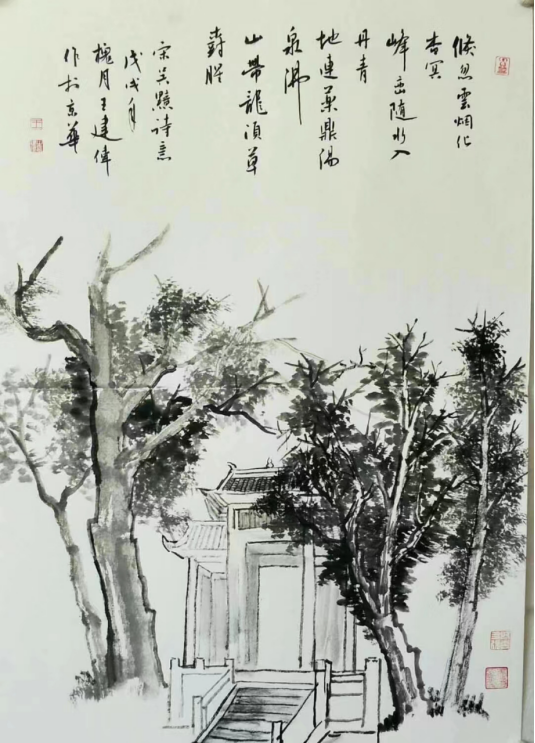 倏忽雲烟化
杳冥
峰巒隨水入
丹青
地連藥鼎湯
泉沸
山帶龍須草
樹腥
宋吴蹟詩意
戊戌年
槐月王建偉
作於京華